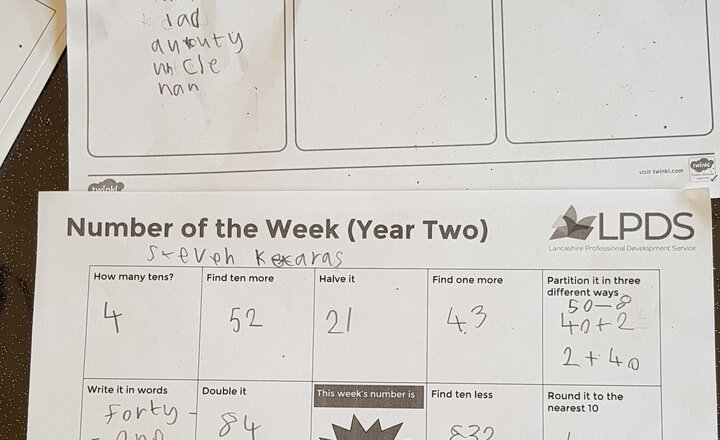 dad
auntuty
uncle
nan
visit twinkl.com
twinkl
twinkl
Number of the Week (Year Two)
LPDS
Lancashire Professional Development Service
Steven
How many tens?
Find ten more
Halve it
Find one more
Partition it in three
different ways
4
52
21
43
50-8
40+2
2+40
Write it in words
Double it
This week's number is
Find ten less
Round it to the
nearest 10
forty-
84
832